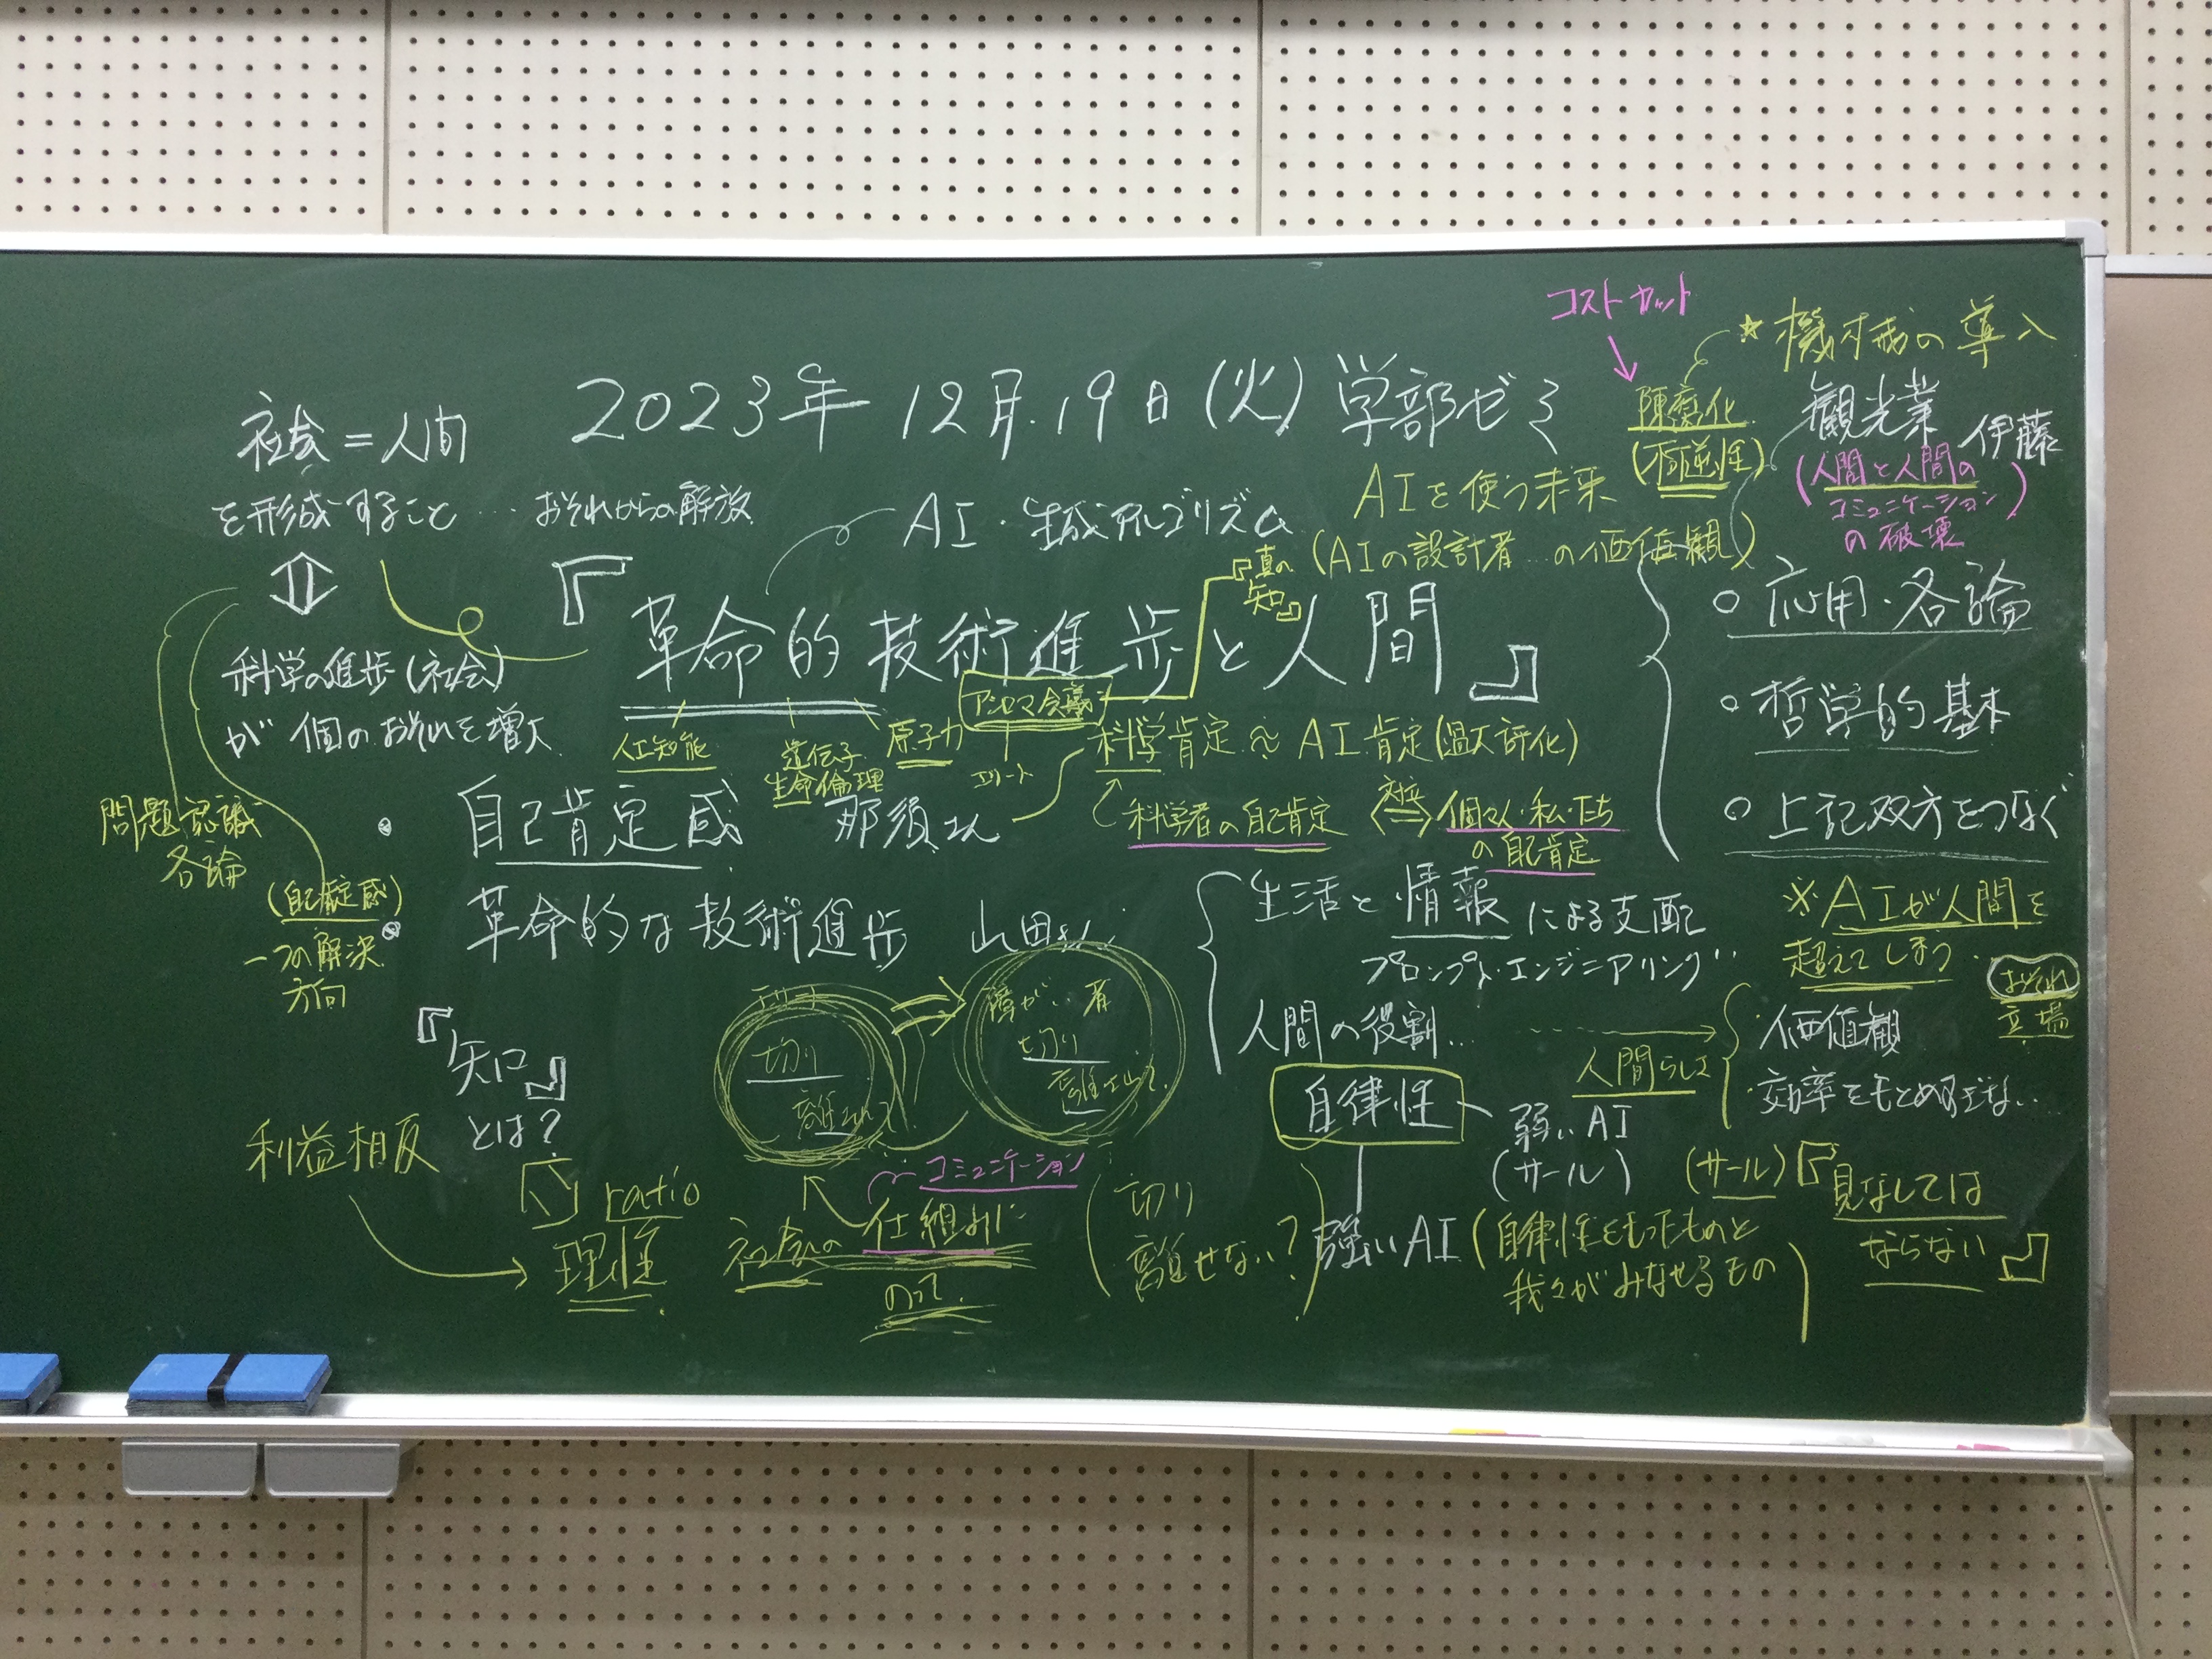 コストカット
☆機械の導入
2023年12月.19日(火)学部ゼミ
陳腐化
(不可逆性)
観光業 伊藤
(人間と人間の
コミュニケーション
の破壊)
社会=人間
を形成すること…おそれからの解放
⇕
科学の進歩(社会)
が個のおそれを増大
AI・生成アルゴリズム
AIを使う未来
(AIの設計者…の価値観)
『真の
知』
『革命的技術進歩と人間』
人工知能
遺伝子
生命倫理
原子力
アシロマ会議
エリート
科学肯定≈AI肯定(過大評化)
科学者の自己肯定
対立
⇔
個々人・私たち
の自己肯定
○応用・各論
○哲学的基本
○上記双方をつなぐ
問題認識
各論
(自己肯定感)
一つの解決
方向
自己肯定感 那須さん
革命的な技術進歩 山田さん
生活と情報による支配
プロンプト・エンジニアリング
人間の役割…
人間らしさ
※AIが人間を
超えてしまう…
おそれ
立場
価値観
・効率をもとめすぎない…
『知』
とは?
利益相反
ratio
理性
エリート
切り
離されて
障がい者
切り
離されて
コミュニケーション
社会の仕組みに
のって.
(切り
離せない?)
自律性
弱いAI
(サール)
強いAI(自律性をもったものと
我々がみなせるもの)
(サール)『見なしては
ならない』